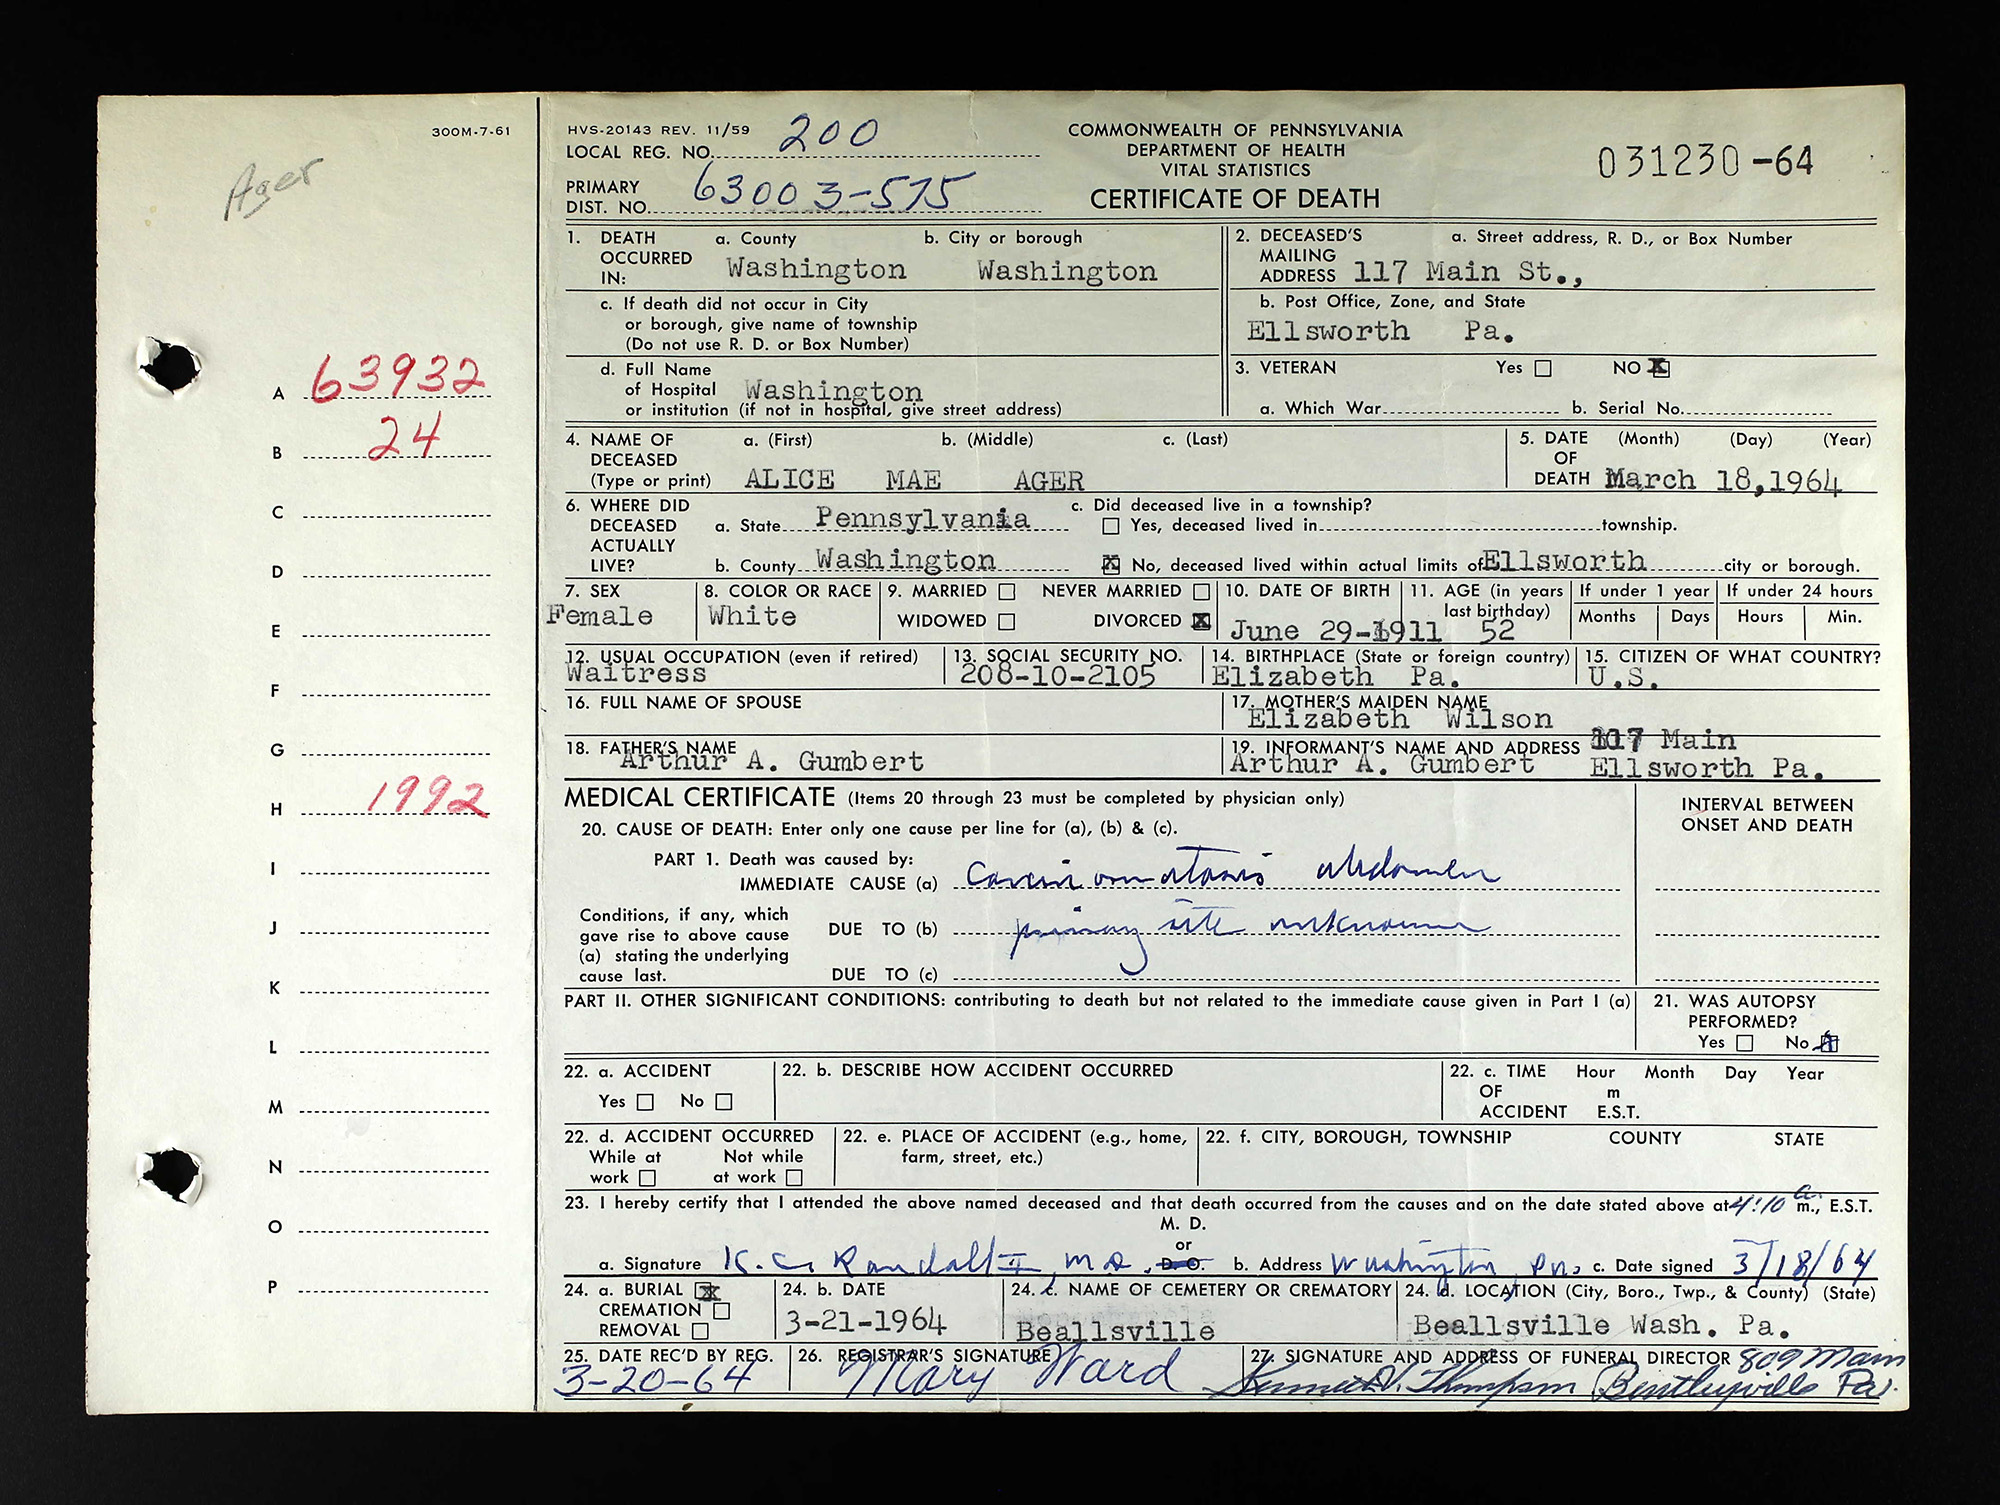 300M-7-61
Ager
A 63932
B 24
C
D
E
F
G
H 1992
I
J
K
L
M
N
O
P
HVS-20143 REV. 11/59
LOCAL REG. NO. 200
PRIMARY
DIST. NO. 63003-575
COMMONWEALTH OF PENNSYLVANIA
DEPARTMENT OF HEALTH
VITAL STATISTICS
CERTIFICATE OF DEATH
031230-64
1. DEATH OCCURRED IN: a. County b. City or borough
Washington Washington
c. If death did not occur in City
or borough, give name of township
(Do not use R. D. or Box Number)
d. Full Name
of Hospital Washington
or institution (if not in hospital, give street address)
2. DECEASED'S MAILING ADDRESS a. Street address, R. D., or Box Number
117 Main St.,
b. Post Office, Zone, and State
Ellsworth Pa.
3. VETERAN Yes NO X
a. Which War b. Serial No.
4. NAME OF DECEASED (Type or print) a. (First) b. (Middle) c. (Last)
ALICE MAE AGER
5. DATE OF DEATH (Month) (Day) (Year)
March 18,1964
6. WHERE DID DECEASED ACTUALLY LIVE?
a. State Pennsylvania
b. County Washington
c. Did deceased live in a township?
Yes, deceased lived in township.
X No, deceased lived within actual limits of Ellsworth city or borough.
7. SEX
Female
8. COLOR OR RACE
White
9. MARRIED NEVER MARRIED
WIDOWED DIVORCED X
10. DATE OF BIRTH
June 29-1911
11. AGE (in years last birthday)
52
If under 1 year
Months Days
If under 24 hours
Hours Min.
12. USUAL OCCUPATION (even if retired)
Waitress
13. SOCIAL SECURITY NO.
208-10-2105
14. BIRTHPLACE (State or foreign country)
Elizabeth Pa.
15. CITIZEN OF WHAT COUNTRY?
U.S.
16. FULL NAME OF SPOUSE
17. MOTHER'S MAIDEN NAME
Elizabeth Wilson
18. FATHER'S NAME
Arthur A. Gumbert
19. INFORMANT'S NAME AND ADDRESS 117 Main
Arthur A. Gumbert Ellsworth Pa.
MEDICAL CERTIFICATE (Items 20 through 23 must be completed by physician only)
INTERVAL BETWEEN
ONSET AND DEATH
20. CAUSE OF DEATH: Enter only one cause per line for (a), (b) & (c).
PART 1. Death was caused by:
IMMEDIATE CAUSE (a) Carcinomatosis abdomen
Conditions, if any, which
gave rise to above cause
(a) stating the underlying
cause last.
DUE TO (b) primary site unknown
DUE TO (c)
PART II. OTHER SIGNIFICANT CONDITIONS: contributing to death but not related to the immediate cause given in Part I (a)
21. WAS AUTOPSY
PERFORMED?
Yes No X
22. a. ACCIDENT
Yes No
22. b. DESCRIBE HOW ACCIDENT OCCURRED
22. c. TIME Hour Month Day Year
OF m
ACCIDENT E.S.T.
22. d. ACCIDENT OCCURRED
While at Not while
work at work
22. e. PLACE OF ACCIDENT (e.g., home,
farm, street, etc.)
22. f. CITY, BOROUGH, TOWNSHIP COUNTY STATE
23. I hereby certify that I attended the above named deceased and that death occurred from the causes and on the date stated above at 4:10 a. m., E.S.T.
M. D.
or
D. O.
a. Signature K. C. Randall II, MD. b. Address Washington, Pa. c. Date signed 3/18/64
24. a. BURIAL X
CREMATION
REMOVAL
24. b. DATE
3-21-1964
24. c. NAME OF CEMETERY OR CREMATORY
Beallsville
24. d. LOCATION (City, Boro., Twp., & County) (State)
Beallsville Wash. Pa.
25. DATE REC'D BY REG.
3-20-64
26. REGISTRAR'S SIGNATURE
Mary Ward
27. SIGNATURE AND ADDRESS OF FUNERAL DIRECTOR 809 Main
Kenneth V. Thompson Bentleyville Pa.